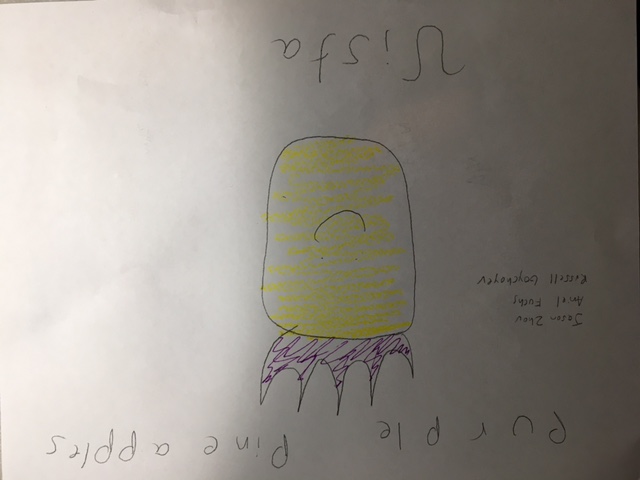 Purple Pineapples
Jason Zhou
Ariel Fuchs
Russell Goychayev
Vista